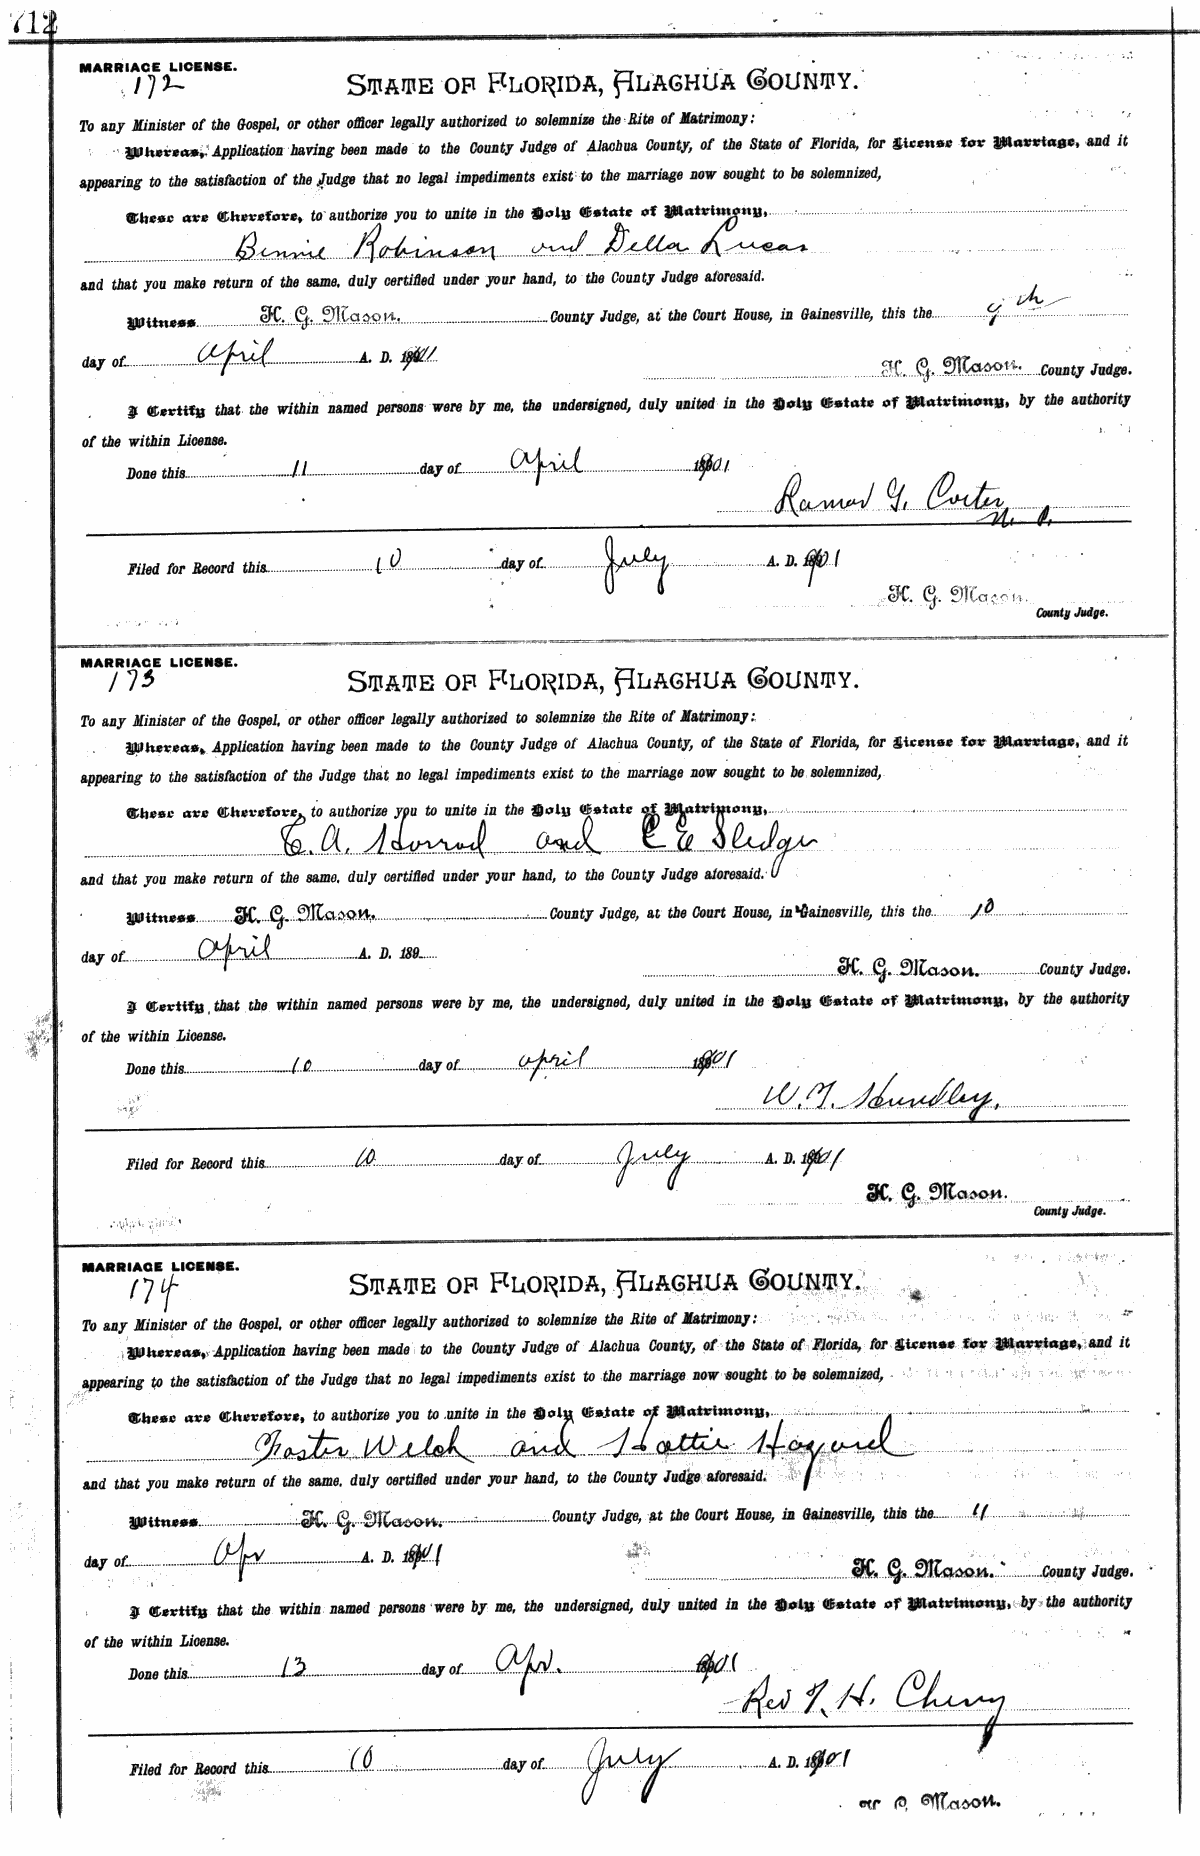 712
MARRIAGE LICENSE.
172
STATE OF FLORIDA, ALACHUA COUNTY.
To any Minister of the Gospel, or other officer legally authorized to solemnize the Rite of Matrimony:
Whereas, Application having been made to the County Judge of Alachua County, of the State of Florida, for License for Marriage, and it
appearing to the satisfaction of the Judge that no legal impediments exist to the marriage now sought to be solemnized,
These are Therefore, to authorize you to unite in the Holy Estate of Matrimony,
Bennie Robinson and Della Lucas
and that you make return of the same, duly certified under your hand, to the County Judge aforesaid.
Witness H. G. Mason. County Judge, at the Court House, in Gainesville, this the 9th
day of April A. D. 1901
H. G. Mason. County Judge.
I Certify that the within named persons were by me, the undersigned, duly united in the Holy Estate of Matrimony, by the authority
of the within License.
Done this 11 day of April 1901
G. Carter
N. P.
Filed for Record this 10 day of July A. D. 1901
H. G. Mason.
County Judge.
MARRIAGE LICENSE.
173
STATE OF FLORIDA, ALACHUA COUNTY.
To any Minister of the Gospel, or other officer legally authorized to solemnize the Rite of Matrimony:
Whereas, Application having been made to the County Judge of Alachua County, of the State of Florida, for License for Marriage, and it
appearing to the satisfaction of the Judge that no legal impediments exist to the marriage now sought to be solemnized,
These are Therefore, to authorize you to unite in the Holy Estate of Matrimony,
C. A. Horrod and C E Sledge
and that you make return of the same, duly certified under your hand, to the County Judge aforesaid.
Witness H. G. Mason. County Judge, at the Court House, in Gainesville, this the 10
day of April A. D. 189
H. G. Mason. County Judge.
I Certify that the within named persons were by me, the undersigned, duly united in the Holy Estate of Matrimony, by the authority
of the within License.
Done this 10 day of April 1901
W. T. Hundley.
Filed for Record this 10 day of July A. D. 1901
H. G. Mason.
County Judge.
MARRIAGE LICENSE.
174
STATE OF FLORIDA, ALACHUA COUNTY.
To any Minister of the Gospel, or other officer legally authorized to solemnize the Rite of Matrimony:
Whereas, Application having been made to the County Judge of Alachua County, of the State of Florida, for License for Marriage, and it
appearing to the satisfaction of the Judge that no legal impediments exist to the marriage now sought to be solemnized,
These are Therefore, to authorize you to unite in the Holy Estate of Matrimony,
Foster Welch and Hattie Hazard
and that you make return of the same, duly certified under your hand, to the County Judge aforesaid.
Witness H. G. Mason. County Judge, at the Court House, in Gainesville, this the 11
day of Apr A. D. 1901
H. G. Mason. County Judge.
I Certify that the within named persons were by me, the undersigned, duly united in the Holy Estate of Matrimony, by the authority
of the within License.
Done this 13 day of Apr. 1901
Rev T. H. Cherry
Filed for Record this 10 day of July A. D. 1901
Mason.